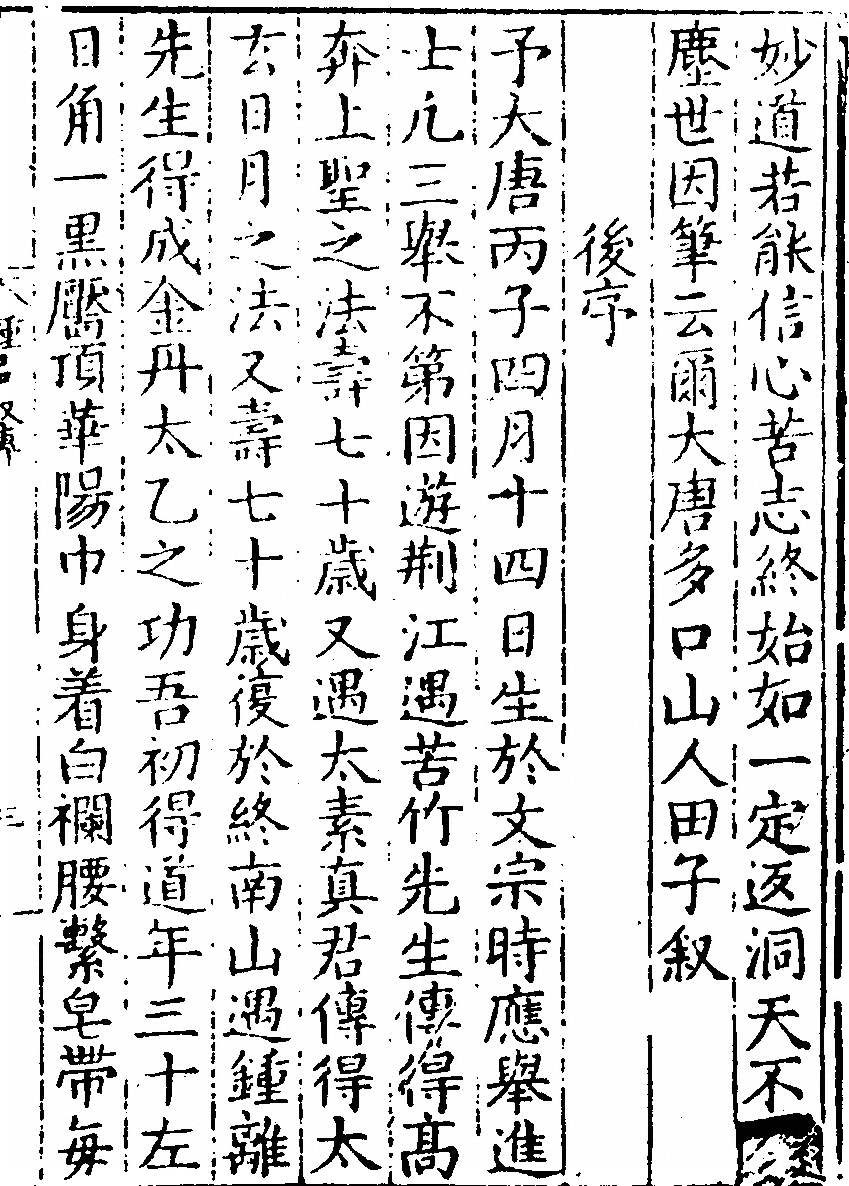 妙道若能信心苦志終始如一定返洞天不
塵世因筆云爾大唐多口山人田子叙
後序
予大唐丙子四月十四日生於文宗時應舉進
士凢三舉不第因遊荆江遇苦竹先生傳得髙
奔上聖之法壽七十歳又遇太素真君傳得太
玄日月之法又壽七十歳復於終南山遇鍾離
先生得成金丹太乙之功吾初得道年三十左
日角一黒靨頂華陽巾身着白襴腰繫皂帶毎